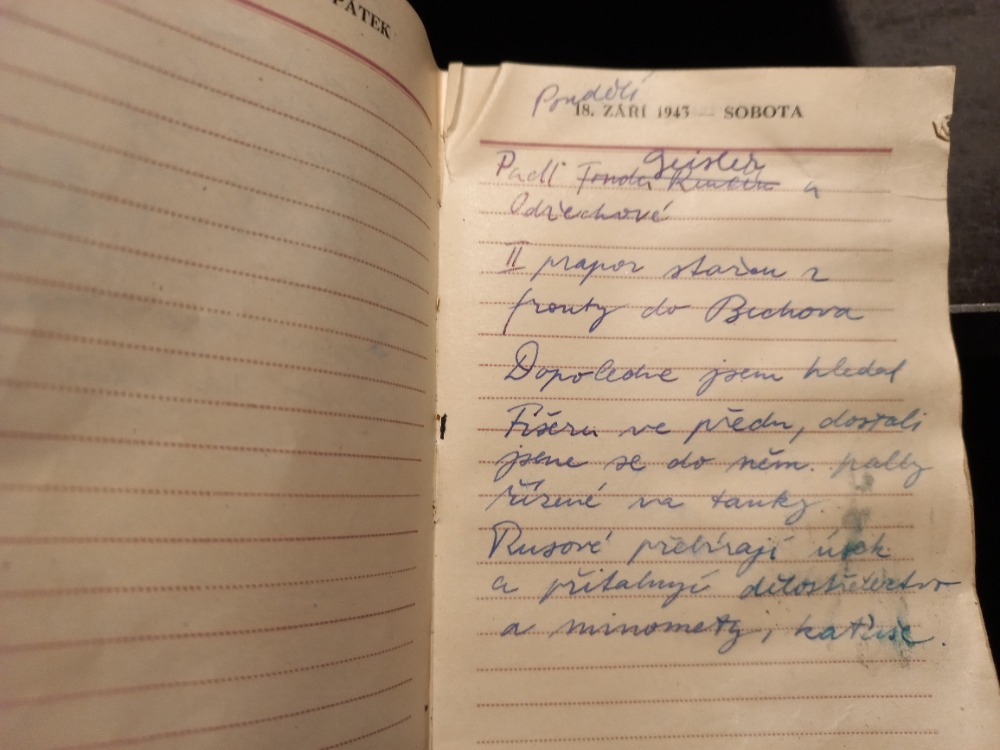 PÁTEK
Pondělí
18. ZÁŘÍ 1943 SOBOTA
Geisler
Padl Fonda a
Odřechové
II prapor stažen z
fronty do Bechova
Dopoledne jsem hledal
Fišeru ve předu, dostali
jsme se do něm. palby
řízené na tanky.
Rusové přebírají úsek
a přitahují dělostřelectvo
a minomety, katuše.